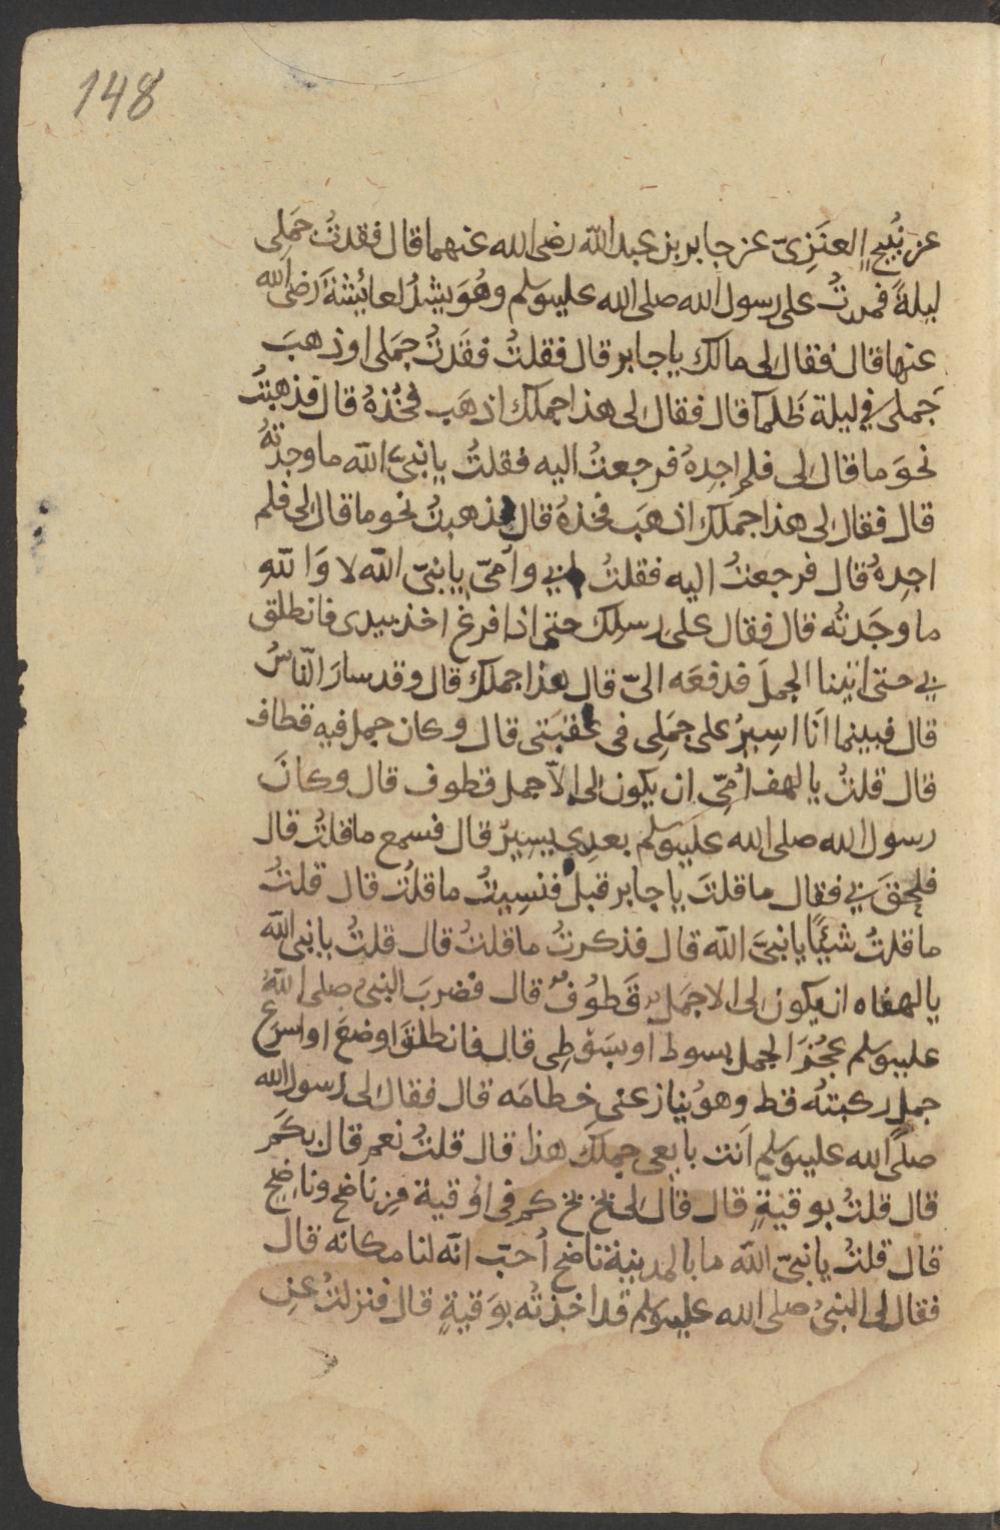 148
عن نُبَيحٍ العنَزِىّ عن جابر بن عبد الله رضى الله عنهما قال فقدتُ جَمَلِى
ليلةً فمررتُ على رسول الله صلى الله عليه وسلم وهُوَ يشدُّ لعائِشةَ رَضى الله
عنها قال فقال لى مالك يا جابر قال فقلتُ فقَدتُ جَمَلى او ذهبَ
جَملى فى ليلة ظَلمآ قال فقال لى هذا جملك اذهَب فخُذهُ قال فذهبتُ
نحوَ ما قال لى فلم اجِدهُ فرجعتُ اليه فقلتُ يا نبىَّ الله ما وجدتُهُ
قال فقال لى هذا جملك اذهَب فخذهُ قال فذهبتُ نحو ما قال لى فلم
اجِدهُ قال فرجعتُ اليه فقلتُ بابى وأمّى يا نبىّ الله لا وَاللهِ
ما وجَدتُه قال فقال على رسلِك حتى اذا فرغ اخذ بيدى فانطلق
بى حتى اتينا الجملَ فدفعَه الىّ قال هذا جملك قال وقد سارَ النّاسُ
قال فبينما اَنا اسِيرُ على جَمَلِى فى عُقبَتى قال وكان جمل فيه قطاف
قال قلتُ يا لهفَ اُمّى ان يكون لى الاّ جمل قطوف قال وكانَ
رسول الله صلى الله عليه وسلم بعدِى يسِيرُ قال فسمع ما قلتُ قال
فلحقَ بى فقال ما قلتَ يا جابر قبلُ فنسِيتُ ما قلتُ قال قلتُ
ما قلتُ شيئًا يا نبىَّ الله قال فذكرتُ ما قلتُ قال قلتُ يا نبى الله
يا لهفاه ان يكون لى الا جمَلٌ قَطوُفٌ قال فضربَ النبىُّ صلى اللهُ
عليه وسلم عجُزَ الجمل بسوط او بسَوْطِى قال فانطلقَ اوضعَ او اسرعَ
جملٍ ركبتُه قط وهوُ ينازعنى خطامَه قال فقال لى رسول الله
صلّى الله عليه وسلم اَنت بايعى جملَكَ هذا قال قلتُ نعم قال بكَم
قال قلتُ بوقيةٍ قال قال لى بَخ بَخ كم فى اوُقية مِن ناضح وناضِحٍ
قال قلتُ يا نبىّ الله ما بالمدينة ناضح اُحبّ انّه لنا مكانه قال
فقال لى النبىُّ صلى الله عليه وسلم قد اخذتُه بوَقيةٍ قال فنزلتُ عنِ